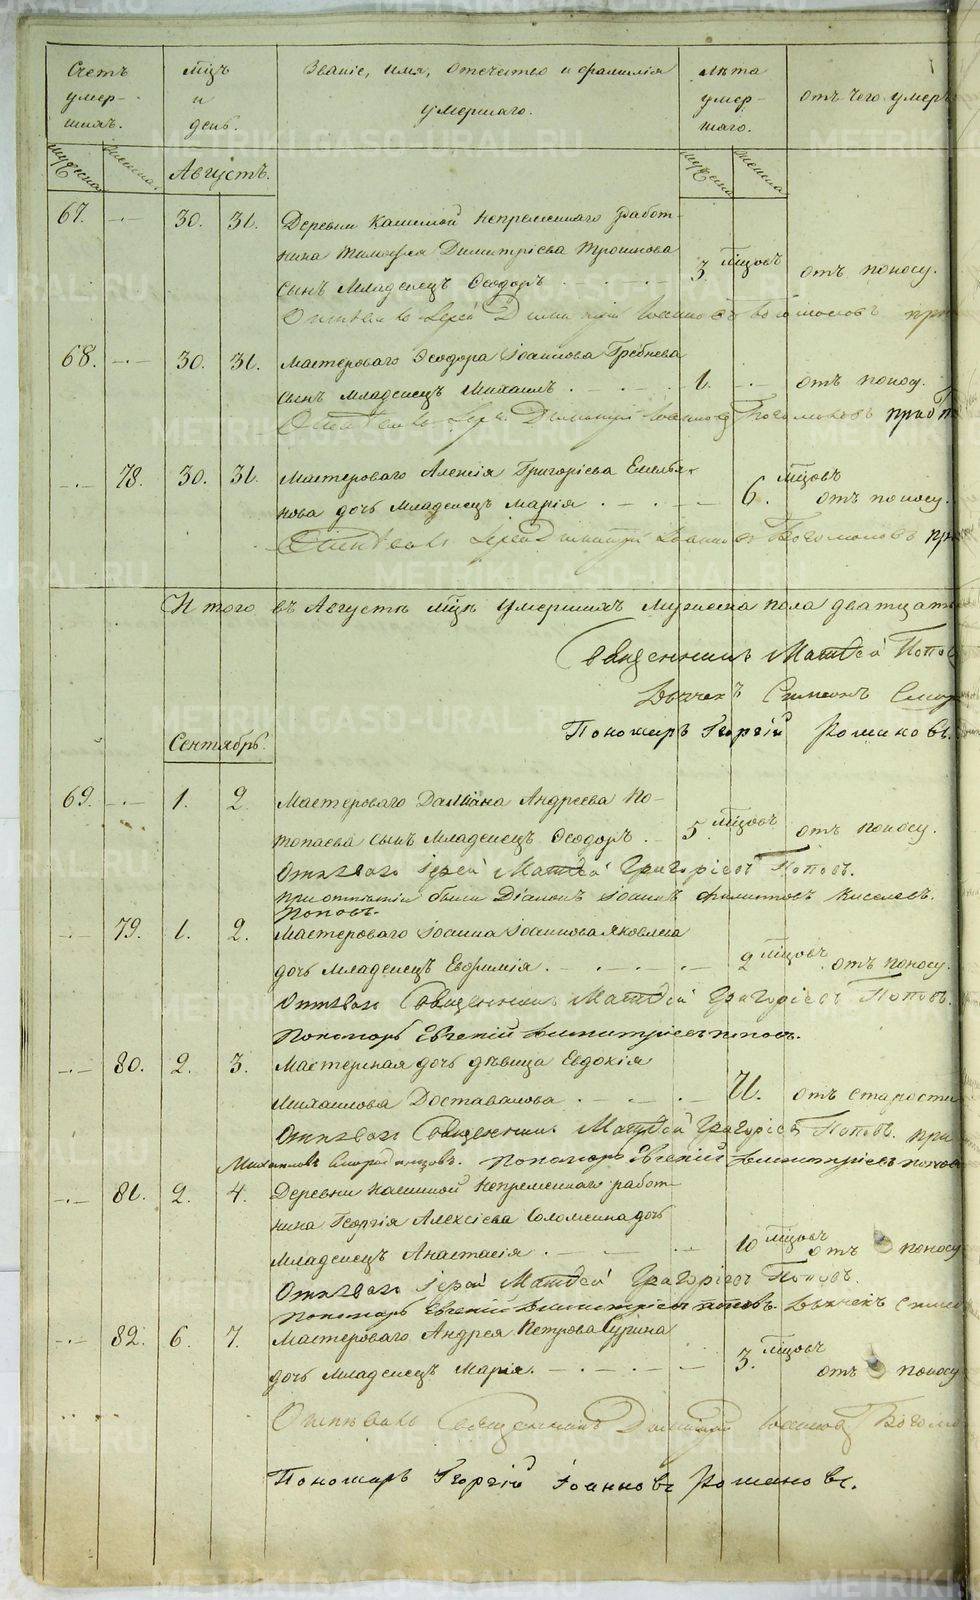 Счетъ умер-шихъ.
Мцъ и день.
Званіе, имя, отечество и фамилія умершаго.
Лѣта умер-шаго.
отъ чего умеръ
мужеска женска
Августъ.
мужеска женска
67. -.- 30. 31. Деревни Кашиной Непременнаго работ-
ника Тимофея Димитріева Трошкова
сынъ Младенецъ Ѳеодоръ . . . 3 мцовъ отъ поносу.
Отпевалъ Іерей Димитрій Іоанновъ Богомоловъ при
68. -.- 30. 31. Мастероваго Ѳеодора Іоаннова Гребнева
сынъ Младенецъ Михаилъ . - . - . 1. -.- отъ поносу.
Отпевалъ Іерей Димитрій Іоанновъ Богомоловъ при П
-.- 78. 30. 31. Мастероваго Алексія Григоріева Емелья-
нова дочь Младенецъ Марія . - . - . - 6. мцовъ отъ поносу.
Отпевалъ Іерей Димитрій Іоанновъ Богомоловъ при
Итого въ Августѣ мцѣ умершихъ Мужеска пола дватцать
Священникъ Матѳей Попов
Дьячекъ Симеонъ
Пономарь Георгій Романовъ.
Сентябрь.
69. -.- 1. 2. Мастероваго Даміана Андреева По-
топаева сынъ Младенецъ Ѳеодоръ . - 5. мцовъ отъ поносу.
Отпѣвалъ Іерей Матѳей Григоріевъ Поповъ.
при отпѣтіи были Діаконъ Іоаннъ Филиповъ Киселевъ.
Поповъ.
-.- 79. 1. 2. Мастероваго Іоанна Іоаннова Яковлева
дочь Младенецъ Евфимія . - . - . - . - 2 мцовъ отъ поносу.
Отпѣвалъ Священникъ Матѳей Григоріевъ Поповъ.
Пономарь Евгений Димитріевъ Поповъ.
-.- 80. 2. 3. Мастерская дочь дѣвица Евдокія
Михаилова Доставалова . - . - . - . - 71. отъ старости
Отпѣвалъ Священникъ Матѳей Григоріевъ Поповъ. при
Михаиловъ Пономарь Евгений Димитріевъ Попов
-.- 81. 2. 4. Деревни Кашиной Непременнаго работ-
ника Георгія Алексіева Соломеина дочь
Младенецъ Анастасія . - . - . - 10 мцовъ отъ поносу
Отпѣвалъ Іерей Матѳей Григоріевъ Поповъ.
Пономарь Евгений Димитріевъ Поповъ. Дьячекъ
-.- 82. 6. 7. Мастероваго Андрея Петрова Сурина
дочь Младенецъ Марія . - . - . - . - 3. мцовъ отъ поносу
Отпѣвалъ Священникъ Димитрій Іоанновъ Богомо
Пономарь Георгій Іоанновъ Романовъ.
METRIKI.GASO-URAL.RU